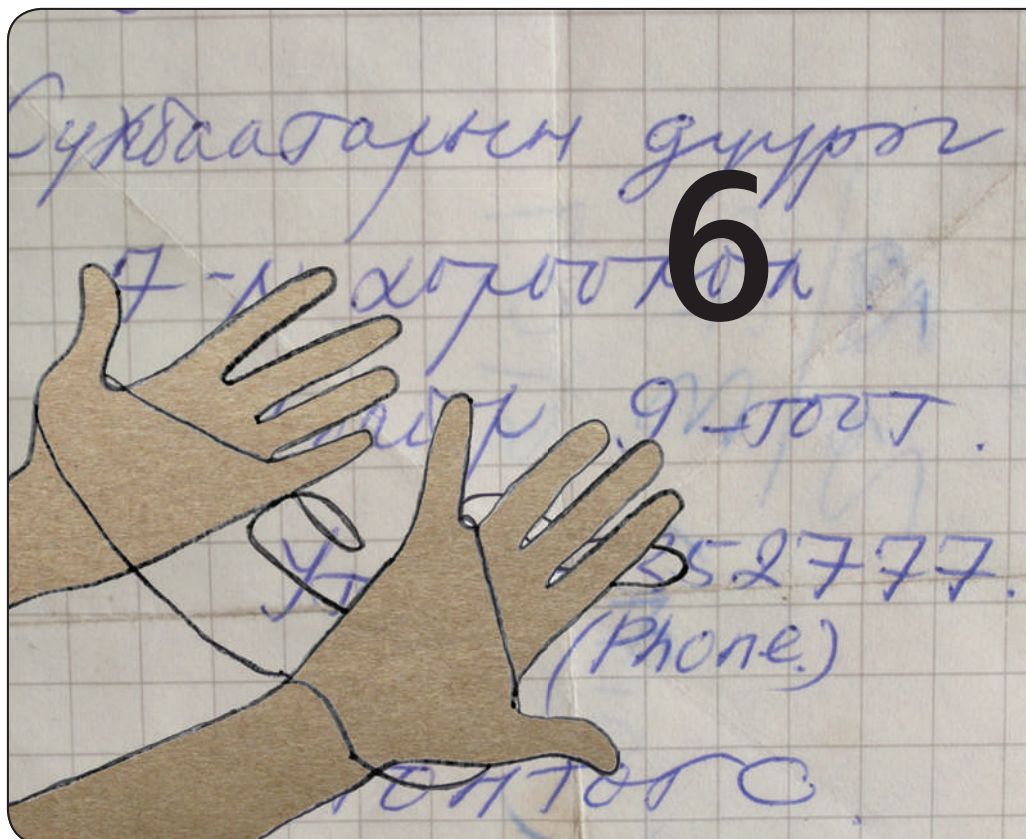 Сүхбаатарын дүүрэг
6
7-р хороолол
9-тоот.
352777.
(Phone.)